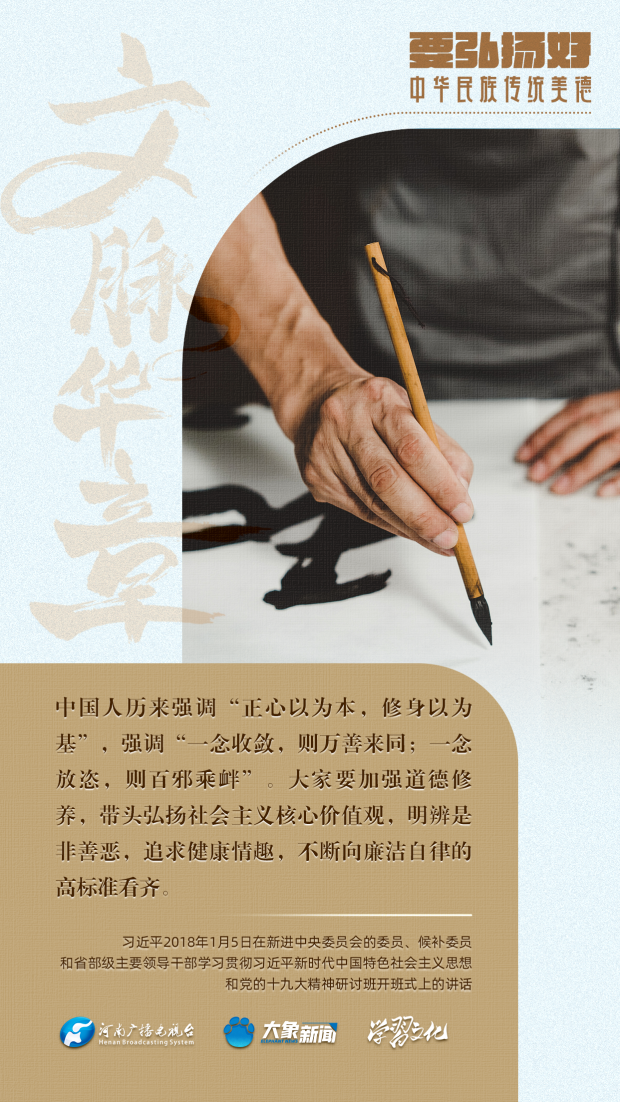 要弘扬好
中华民族传统美德
文脉华章
中国人历来强调“正心以为本，修身以为
基”，强调“一念收敛，则万善来同；一念
放恣，则百邪乘衅”。大家要加强道德修
养，带头弘扬社会主义核心价值观，明辨是
非善恶，追求健康情趣，不断向廉洁自律的
高标准看齐。
习近平2018年1月5日在新进中央委员会的委员、候补委员
和省部级主要领导干部学习贯彻习近平新时代中国特色社会主义思想
和党的十九大精神研讨班开班式上的讲话
河南广播电视台
Henan Broadcasting System
大象新闻
学習文化